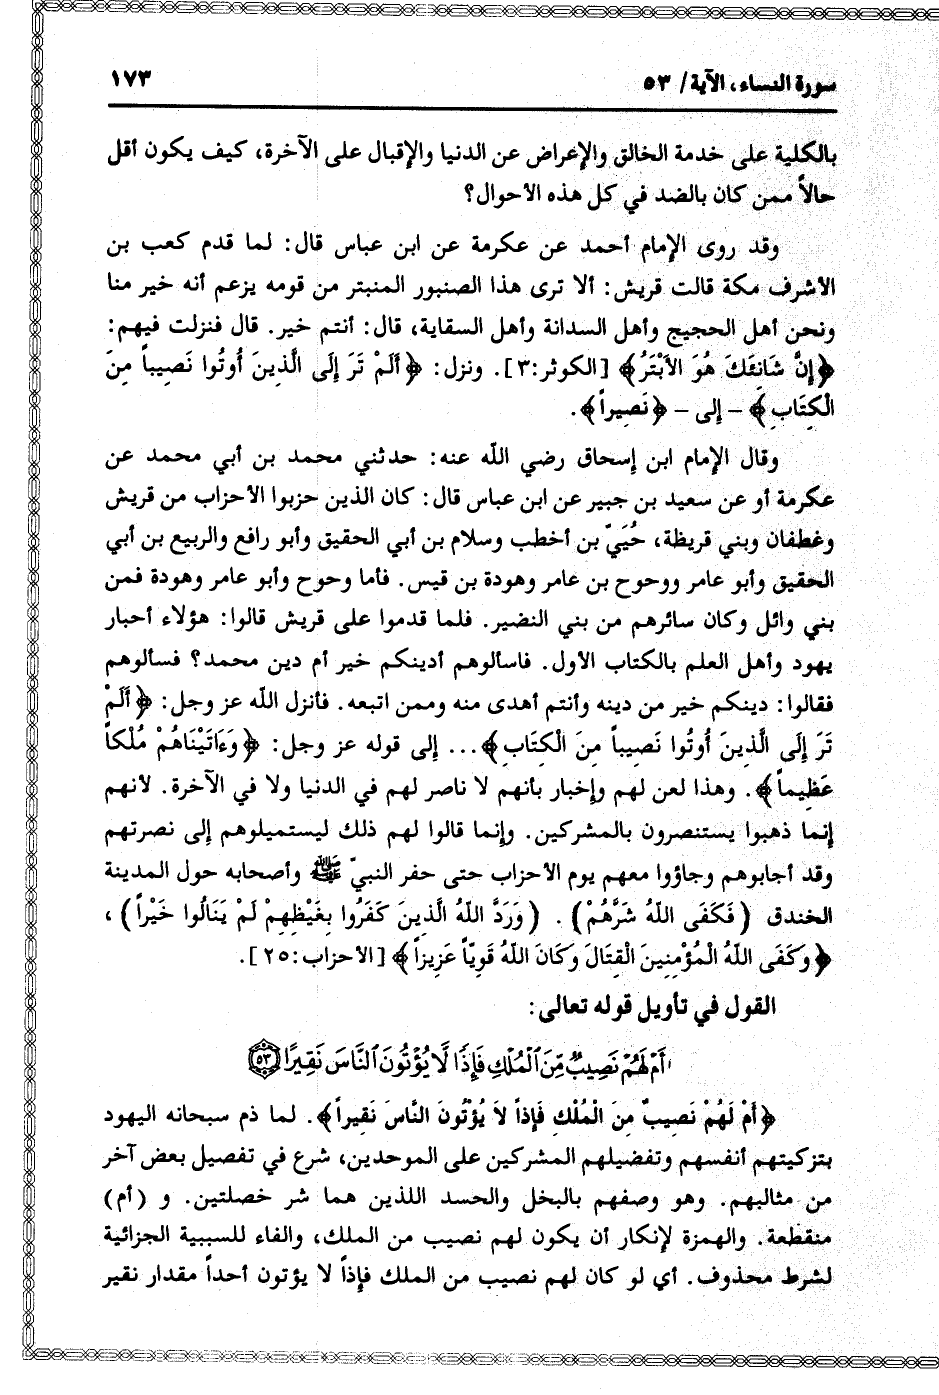 سورة النساء، الآية/ ٥٣
١٧٣
بالكلية على خدمة الخالق والإعراض عن الدنيا والإقبال على الآخرة، كيف يكون أقل
حالاً ممن كان بالضد في كل هذه الأحوال؟
وقد روى الإمام أحمد عن عكرمة عن ابن عباس قال: لما قدم كعب بن
الأشرف مكة قالت قريش: ألا ترى هذا الصنبور المنبتر من قومه يزعم أنه خير منا
ونحن أهل الحجيج وأهل السدانة وأهل السقاية، قال: أنتم خير. قال فنزلت فيهم:
﴿إِنَّ شَانِئَكَ هُوَ الأَبْتَرُ﴾ [الكوثر:٣]. ونزل: ﴿أَلَمْ تَرَ إِلَى الَّذِينَ أُوتُوا نَصِيباً مِنَ
الْكِتَابِ﴾ – إلى – ﴿نَصِيراً﴾.
وقال الإمام ابن إسحاق رضي الله عنه: حدثني محمد بن أبي محمد عن
عكرمة أو عن سعيد بن جبير عن ابن عباس قال: كان الذين حزبوا الأحزاب من قريش
وغطفان وبني قريظة، حُيَيّ بن أخطب وسلام بن أبي الحقيق وأبو رافع والربيع بن أبي
الحقيق وأبو عامر ووحوح بن عامر وهودة بن قيس. فأما وحوح وأبو عامر وهودة فمن
بني وائل وكان سائرهم من بني النضير. فلما قدموا على قريش قالوا: هؤلاء أحبار
يهود وأهل العلم بالكتاب الأول. فاسألوهم أدينكم خير أم دين محمد؟ فسألوهم
فقالوا: دينكم خير من دينه وأنتم أهدى منه وممن اتبعه. فأنزل الله عز وجل: ﴿أَلَمْ
تَرَ إِلَى الَّذِينَ أُوتُوا نَصِيباً مِنَ الْكِتَابِ﴾... إلى قوله عز وجل: ﴿وَءَاتَيْنَاهُمْ مُلْكاً
عَظِيماً﴾. وهذا لعن لهم وإخبار بأنهم لا ناصر لهم في الدنيا ولا في الآخرة. لأنهم
إنما ذهبوا يستنصرون بالمشركين. وإنما قالوا لهم ذلك ليستميلوهم إلى نصرتهم
وقد أجابوهم وجاؤوا معهم يوم الأحزاب حتى حفر النبيّ ﷺ وأصحابه حول المدينة
الخندق (فَكَفَى اللهُ شَرَّهُمْ). (وَرَدَّ اللهُ الَّذِينَ كَفَرُوا بِغَيْظِهِمْ لَمْ يَنَالُوا خَيْراً)،
﴿وَكَفَى اللهُ الْمُؤْمِنِينَ الْقِتَالَ وَكَانَ اللهُ قَوِيّاً عَزِيزاً﴾ [الأحزاب:٢٥].
القول في تأويل قوله تعالى:
أَمْ لَهُمْ نَصِيبٌ مِّنَ ٱلْمُلْكِ فَإِذًا لَّا يُؤْتُونَ ٱلنَّاسَ نَقِيرًا ۝٥٣
﴿أَمْ لَهُمْ نَصِيبٌ مِنَ الْمُلْكِ فَإِذاً لاَ يُؤْتُونَ النَّاسَ نَقيراً﴾. لما ذم سبحانه اليهود
بتزكيتهم أنفسهم وتفضيلهم المشركين على الموحدين، شرع في تفصيل بعض آخر
من مثالبهم. وهو وصفهم بالبخل والحسد اللذين هما شر خصلتين. و (أم)
منقطعة. والهمزة لإنكار أن يكون لهم نصيب من الملك، والفاء للسببية الجزائية
لشرط محذوف. أي لو كان لهم نصيب من الملك فإذاً لا يؤتون أحداً مقدار نقير